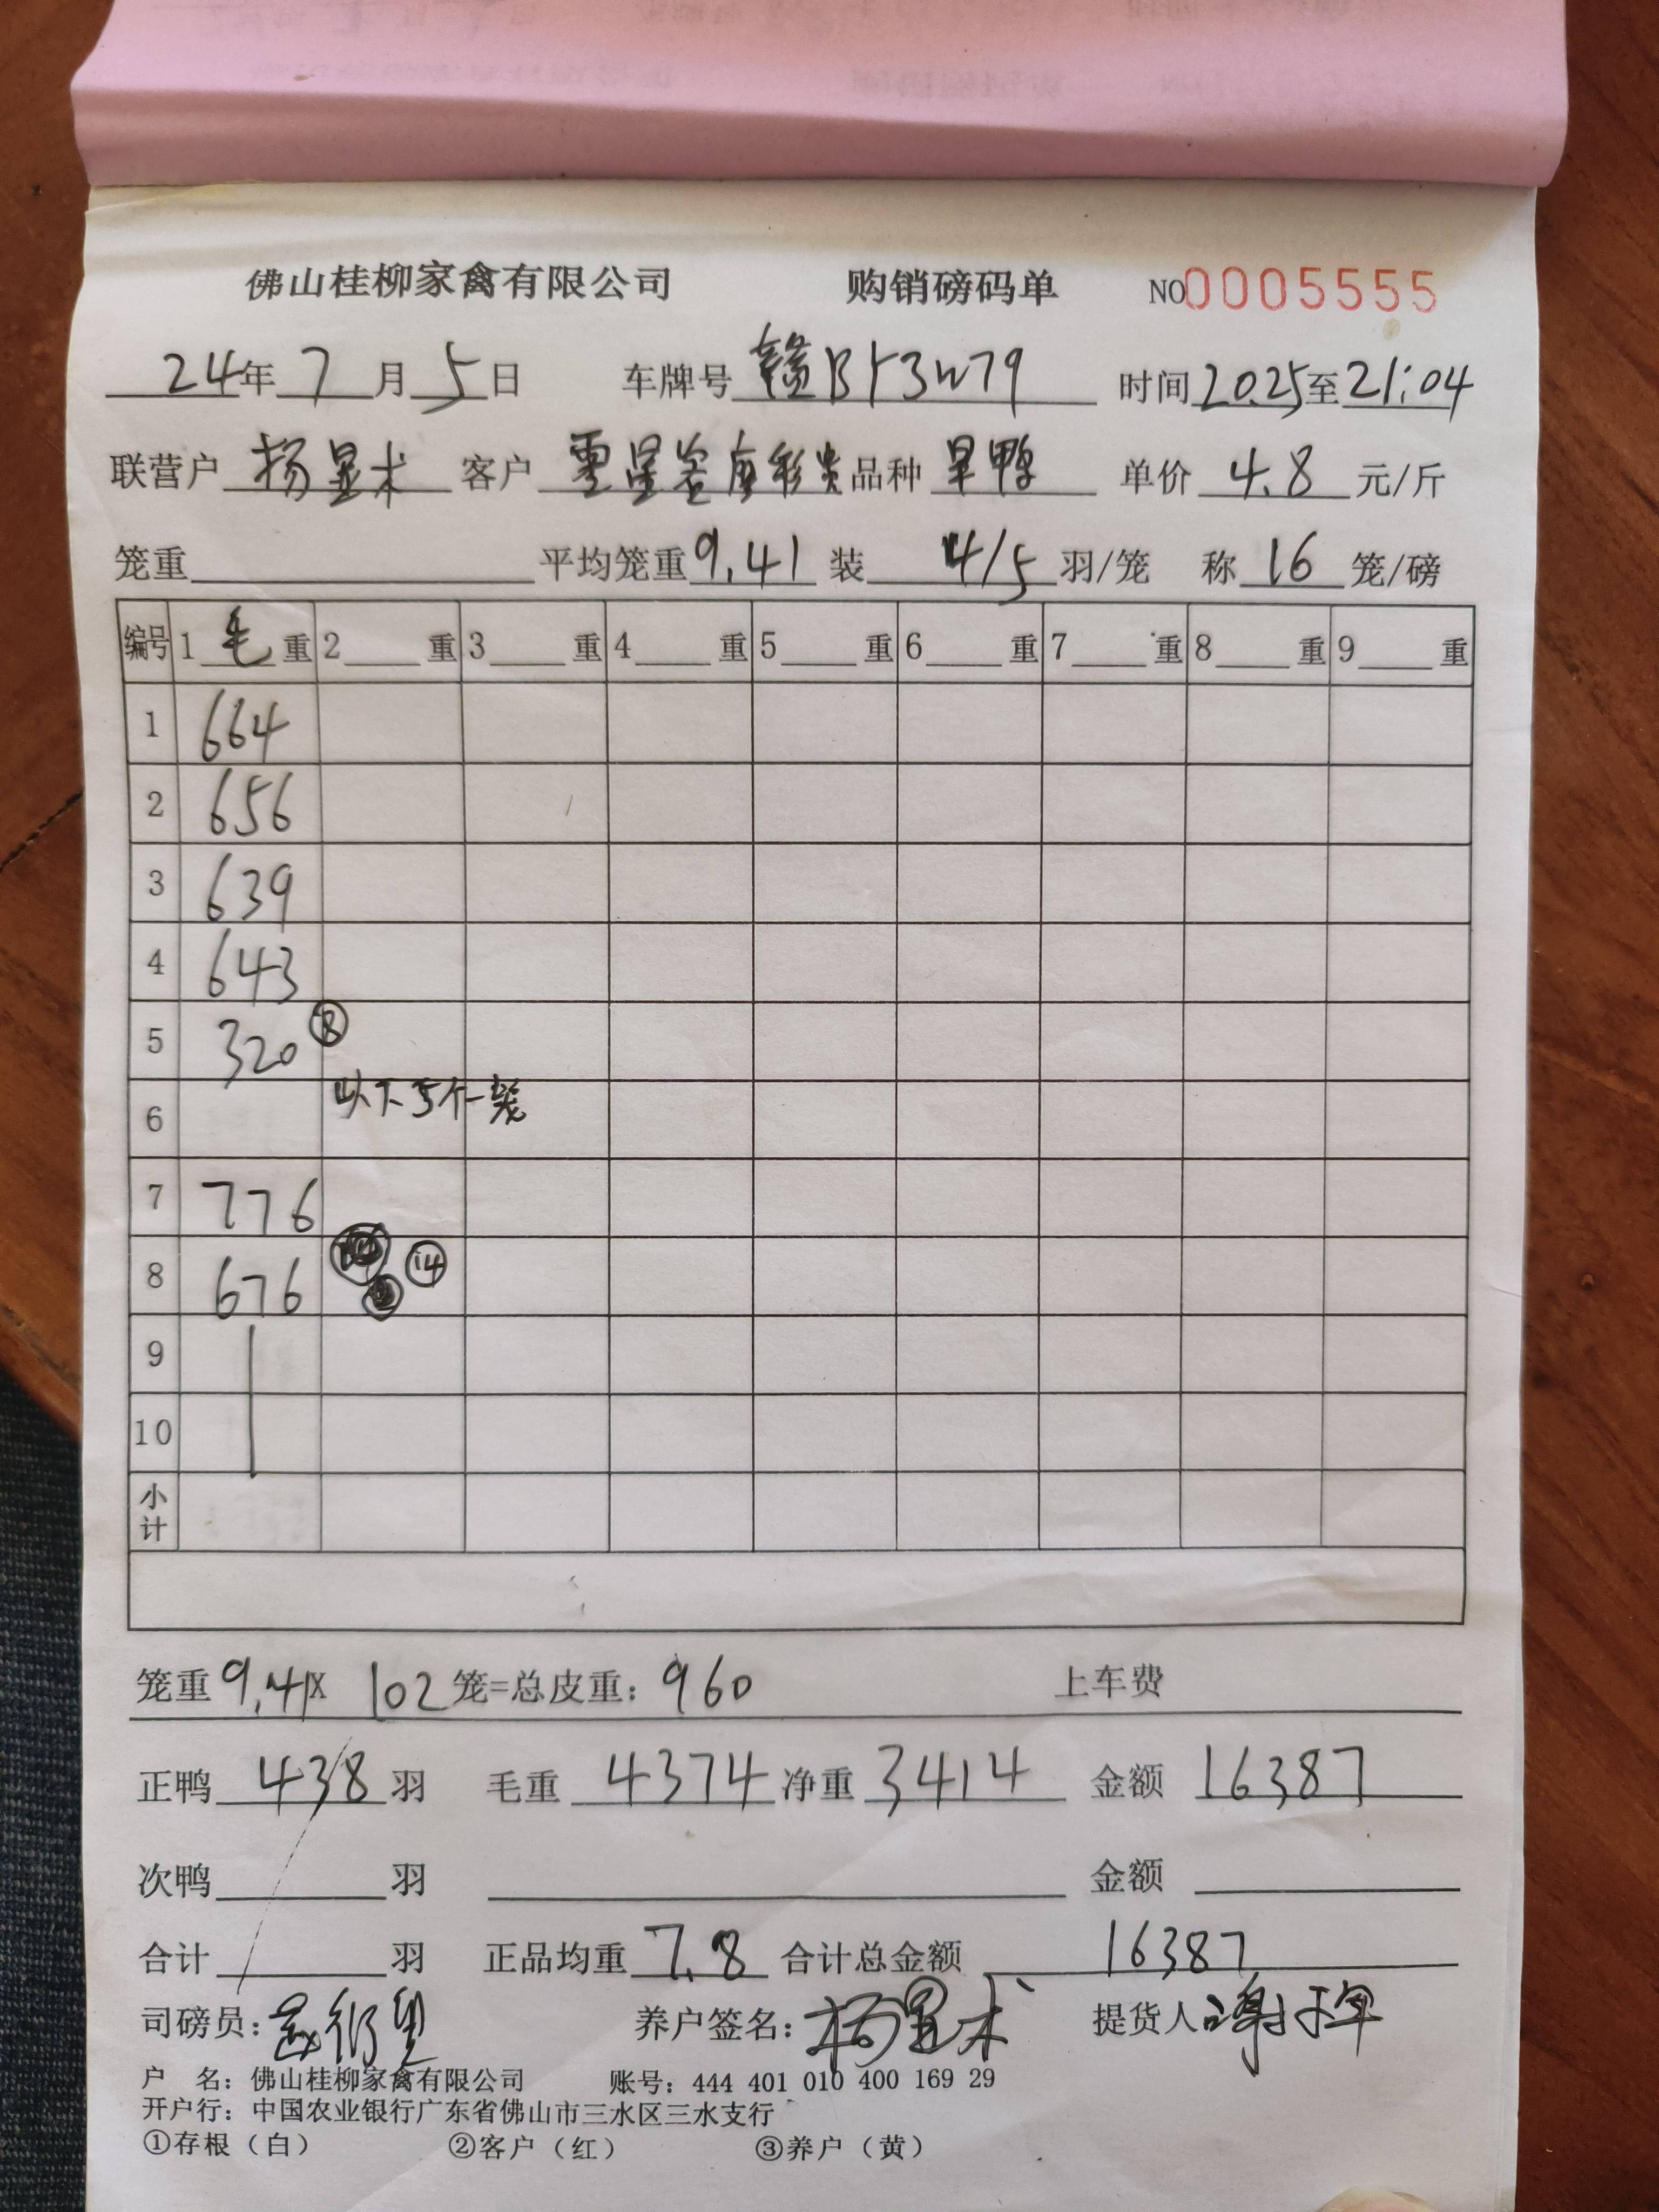 佛山桂柳家禽有限公司 购销磅码单 NO0005555
24年7月5日 车牌号 赣B 时间20.25至21:04
联营户 杨显术 客户 品种 旱鸭 单价 4.8 元/斤
笼重 平均笼重9.41 装 4/5 羽/笼 称 16 笼/磅
编号 1毛重 2 重 3 重 4 重 5 重 6 重 7 重 8 重 9 重
1 664
2 656
3 639
4 643
5 320 ⑧
6 以下5个一笼
7 776
8 676 ⑭
9
10
小计
笼重9.41X 102笼=总皮重：960 上车费
正鸭 438 羽 毛重 4374 净重 3414 金额 16387
次鸭 羽 金额
合计 羽 正品均重 7.8 合计总金额 16387
司磅员： 养户签名：杨显术 提货人
户 名：佛山桂柳家禽有限公司 账号：444 401 010 400 169 29
开户行：中国农业银行广东省佛山市三水区三水支行
①存根（白） ②客户（红） ③养户（黄）